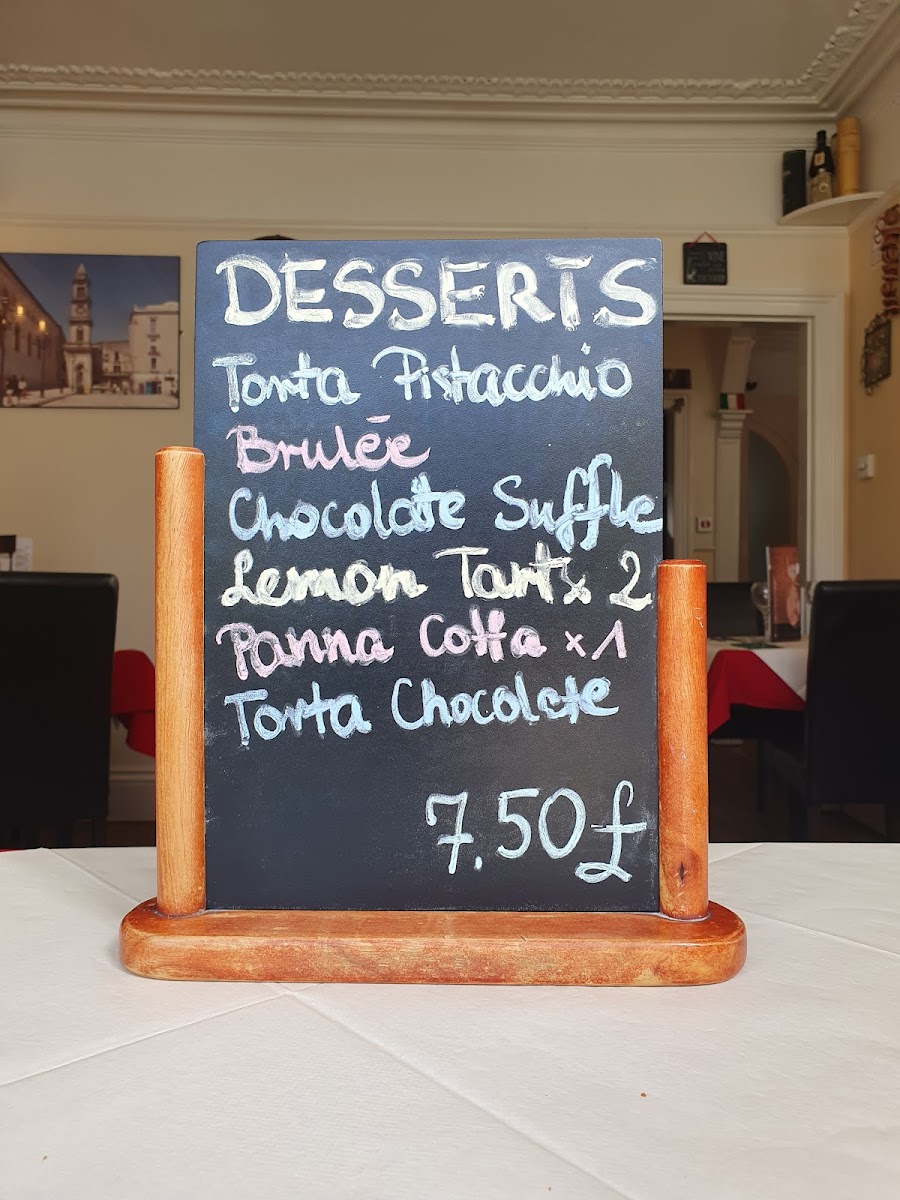 DESSERTS
Torta Pistacchio
Brulée
Chocolatte Suffle
Lemon Tart x 2
Panna Cotta x 1
Torta Chocolate
7.50£